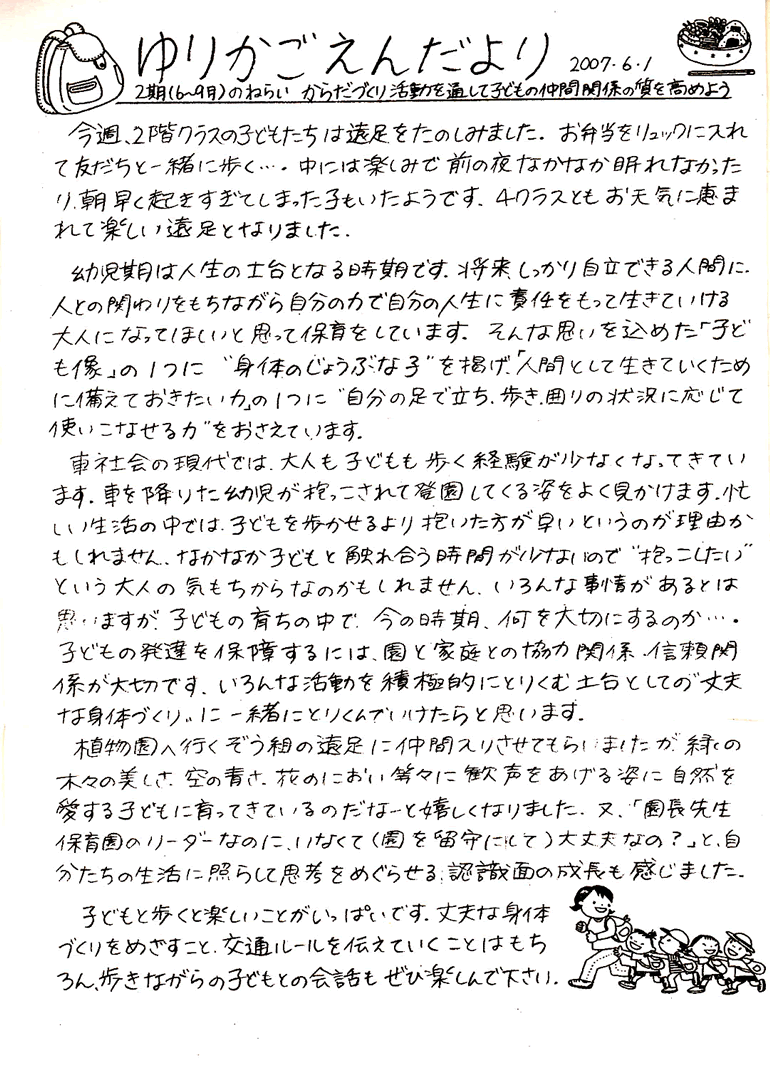 ゆりかごえんだより 2007.6.1
2期(6~9月)のねらい からだづくり活動を通して子どもの仲間関係の質を高めよう
今週、2階クラスの子どもたちは遠足をたのしみました。お弁当をリュックに入れ
て友だちと一緒に歩く…。中には楽しみで前の夜なかなか眠れなかった
り、朝早く起きすぎてしまった子もいたようです。4クラスともお天気に恵ま
れて楽しい遠足となりました。
幼児期は人生の土台となる時期です。将来、しっかり自立できる人間に、
人との関わりをもちながら自分の力で自分の人生に責任をもって生きていける
大人になってほしいと思って保育をしています。そんな思いを込めた「子ど
も像」の1つに“身体のじょうぶな子”を掲げ、「人間として生きていくため
に備えておきたい力」の1つに“自分の足で立ち、歩き、囲りの状況に応じて
使いこなせる力”をおさえています。
車社会の現代では、大人も子どもも歩く経験が少なくなってきてい
ます。車を降りた幼児が抱っこされて登園してくる姿をよく見かけます。忙
しい生活の中では、子どもを歩かせるより抱いた方が早いというのが理由か
もしれません。なかなか子どもと触れ合う時間が少ないので“抱っこしたい”
という大人の気もちからなのかもしれません。いろんな事情があるとは
思いますが、子どもの育ちの中で、今の時期、何を大切にするのか…。
子どもの発達を保障するには、園と家庭との協力関係、信頼関
係が大切です。いろんな活動を積極的にとりくむ土台としての“丈夫
な身体づくり”に一緒にとりくんでいけたらと思います。
植物園へ行くぞう組の遠足に仲間入りさせてもらいましたが、緑の
木々の美しさ、空の青さ、花のにおい等々に歓声をあげる姿に自然を
愛する子どもに育ってきているのだなーと嬉しくなりました。又、「園長先生
保育園のリーダーなのに、いなくて(園を留守にして)大丈夫なの?」と、自
分たちの生活に照らして思考をめぐらせる、認識面の成長も感じました。
子どもと歩くと楽しいことがいっぱいです。丈夫な身体
づくりをめざすこと、交通ルールを伝えていくことはもち
ろん、歩きながらの子どもとの会話もぜひ楽しんで下さい。